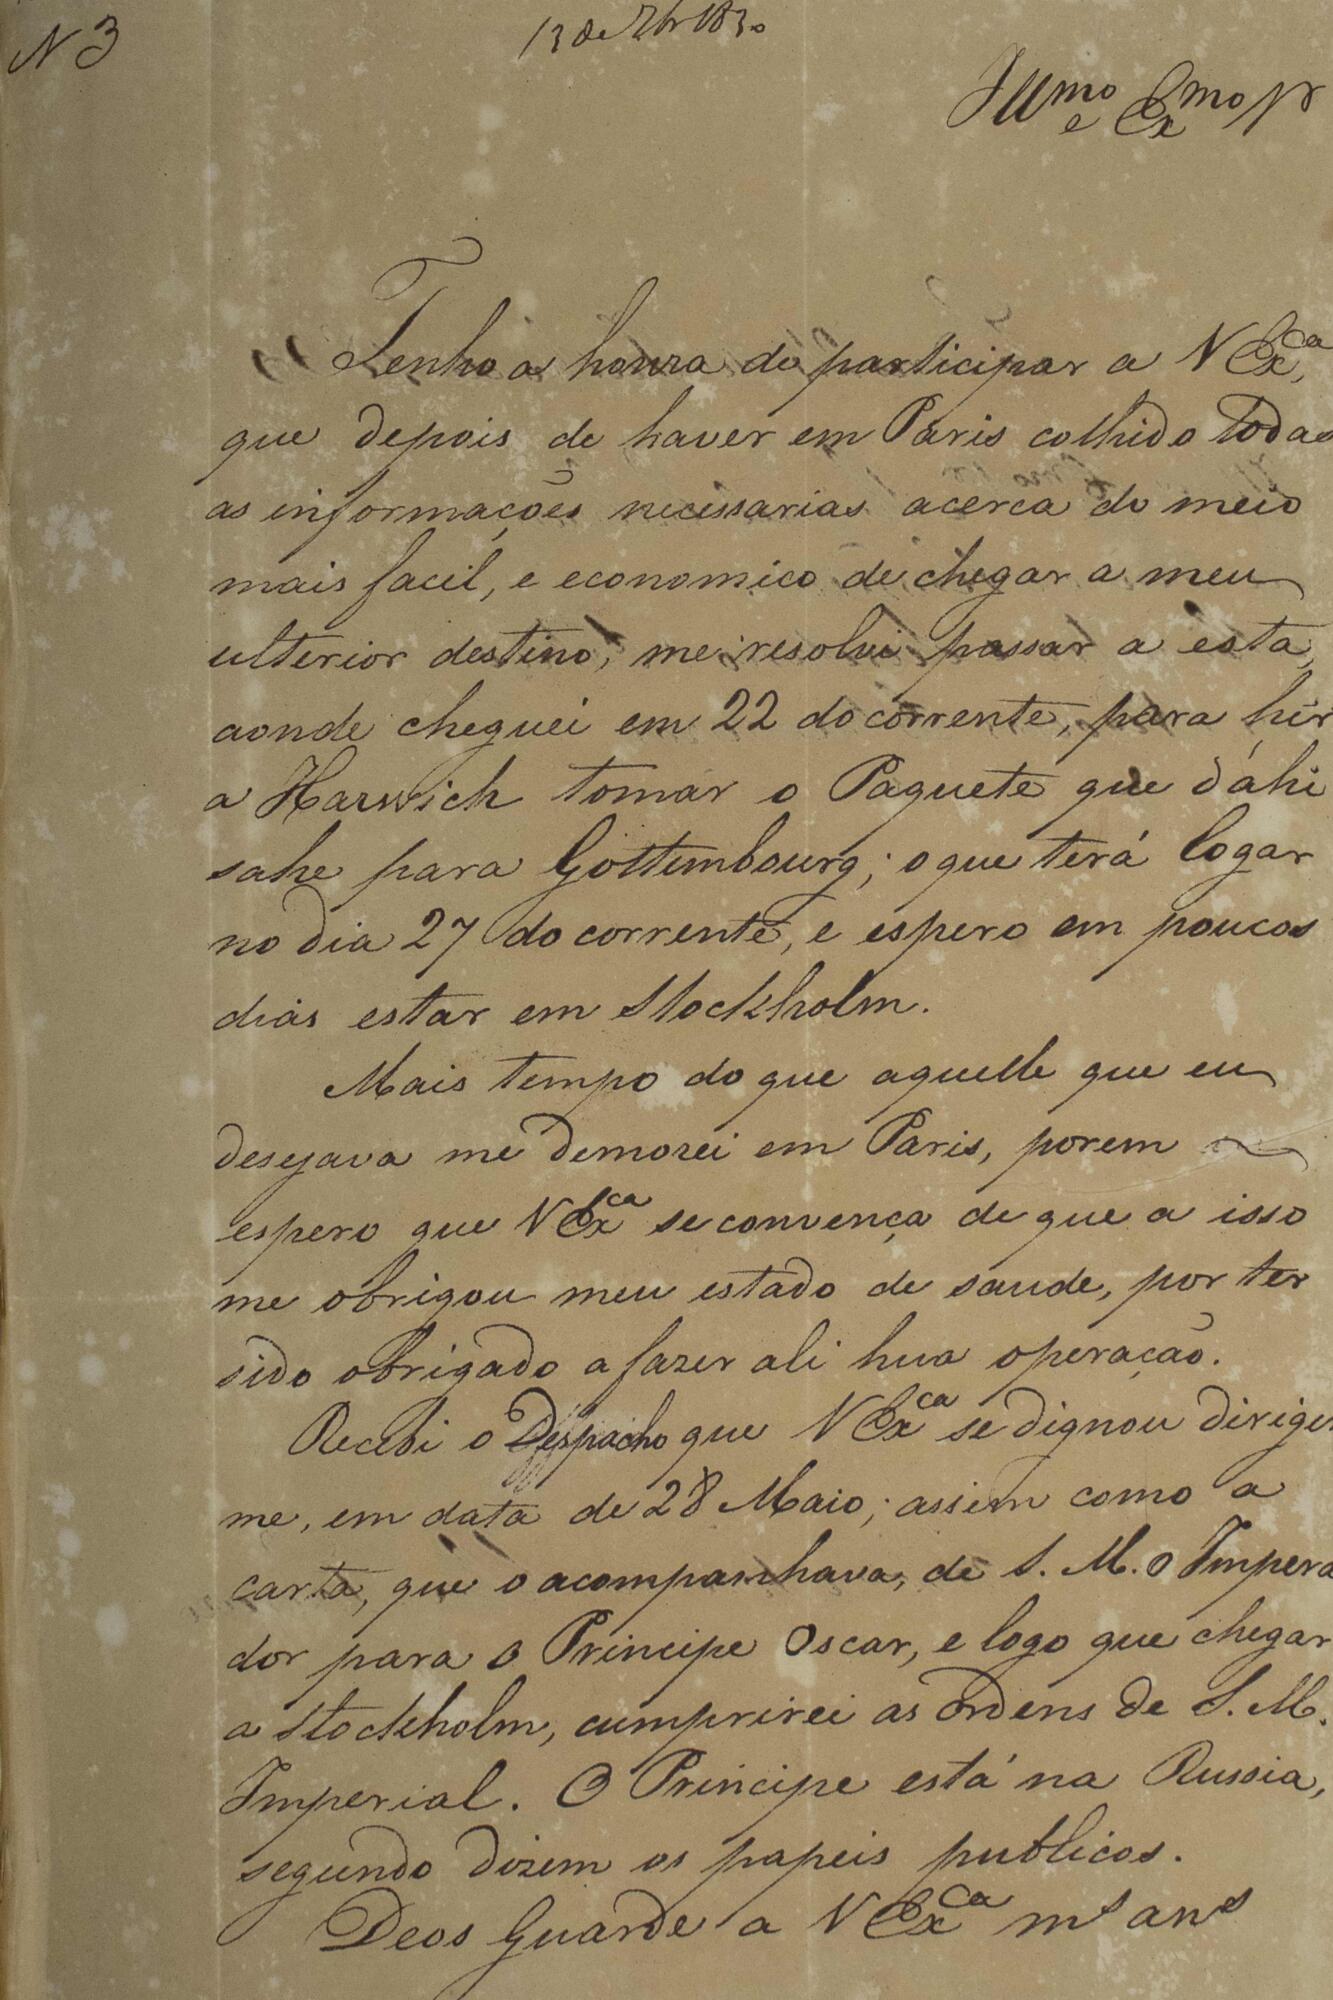 N 3
13 de 7br 1830
Illmo e Exmo Sr
Tenho a honra de participar a V Exca,
que depois de haver em Paris colhido todas
as informações necessarias acerca do meio
mais facil, e economico de chegar a meu
ulterior destino, me resolvi passar a esta,
aonde cheguei em 22 do corrente, para hir
a Harwich tomar o Paquete que d'ahi
sahe para Gottembourg; o que terá logar
no dia 27 do corrente, e espero em poucos
dias estar em Stockholm.
Mais tempo do que aquelle que eu
desejava me demorei em Paris, porem
espero que V Exca se convença de que a isso
me obrigou meu estado de saude, por ter
sido obrigado a fazer ali hua operação.
Recebi o Despacho que V Exca se dignou dirigir
me, em data de 28 Maio; assim como a
carta, que o acompanhava, de S. M. o Impera
dor para o Principe Oscar, e logo que chegar
a Stockholm, cumprirei as ordens de S. M.
Imperial. O Principe está na Russia,
segundo dizem os papeis publicos.
Deos Guarde a V Exca ms ans